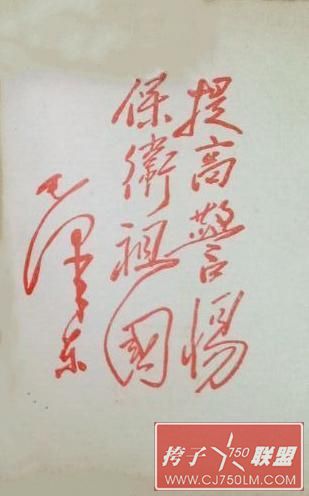 提高警惕
保衛祖國
毛澤东
挎子750联盟
WWW.CJ750LM.COM